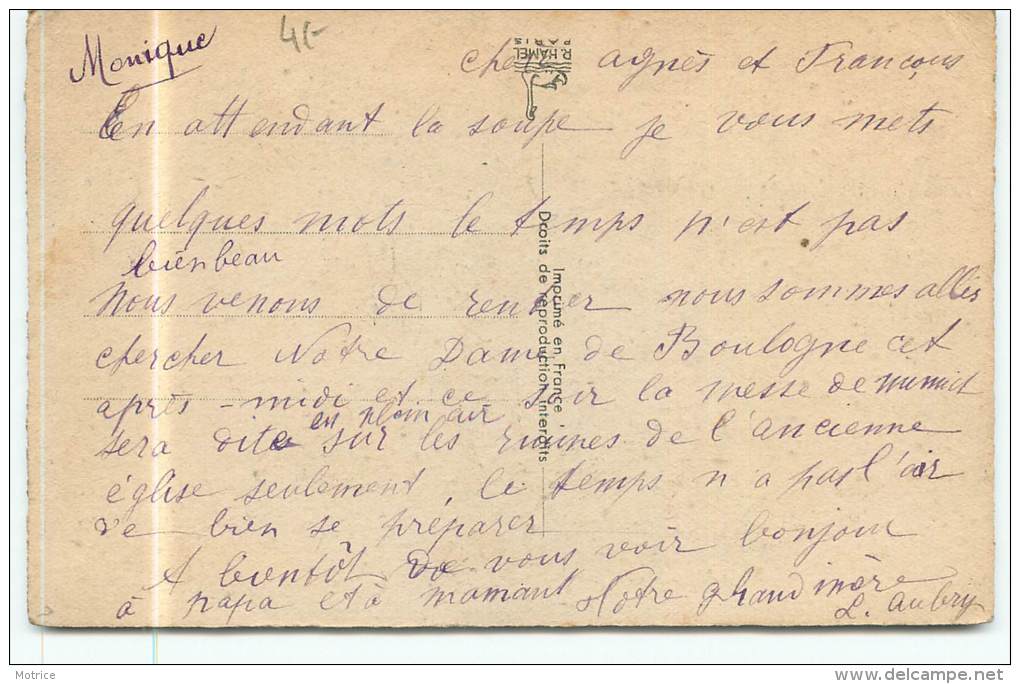 Monique
4/-
R. HAMEL
PARIS
cher agnès et François
En attendant la soupe je vous mets
quelques mots le temps n'est pas
bien beau
Nous venons de rentrer nous sommes allés
chercher Notre Dame de Boulogne cet
après-midi et ce soir la messe de minuit
en plein air
sera dite sur les ruines de l'ancienne
église seulement, le temps n a pas l'air
de bien se préparer
A bientôt de vous voir bonjour
à papa et à mamant Notre grand mère
L. Aubry
Imprimé en France
Droits de reproduction interdits
Motrice
delcampe.net